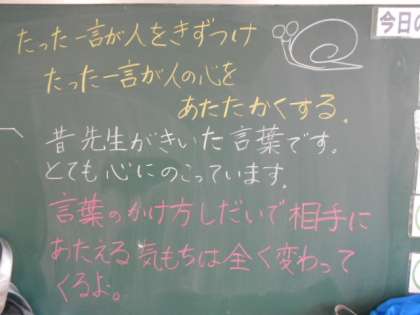 たった一言が人をきずつけ
たった一言が人の心を
あたたかくする.
昔先生がきいた言葉です。
とても心にのこっています.
言葉のかけ方しだいで相手に
あたえる気もちは全く変わって
くるよ。
今日の